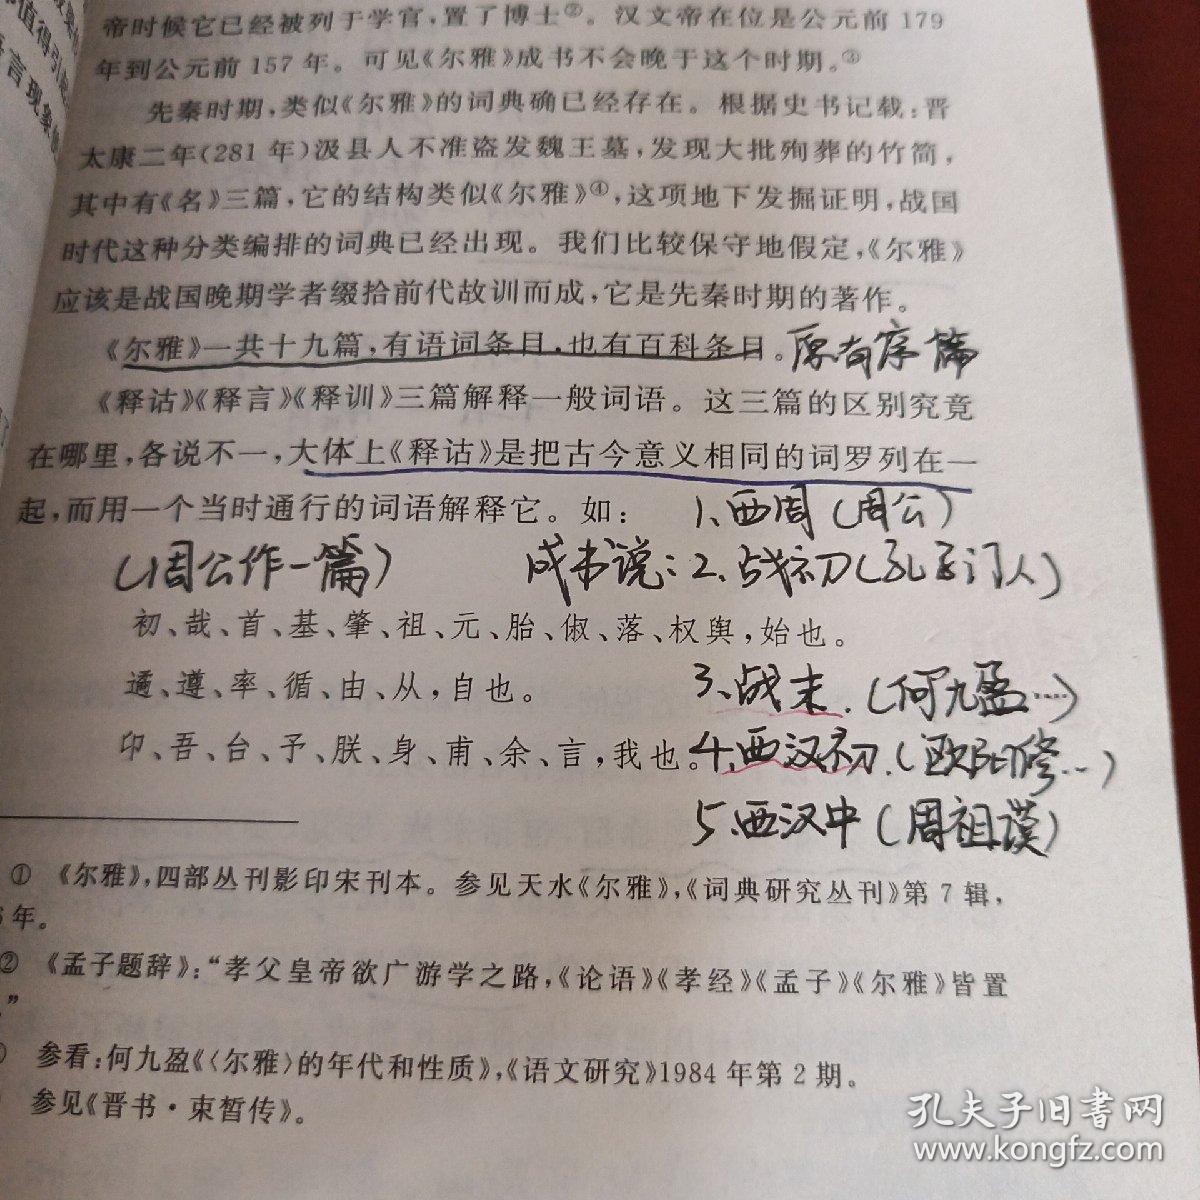 帝时候它已经被列于学官，置了博士②。汉文帝在位是公元前 179
年到公元前 157 年。可见《尔雅》成书不会晚于这个时期。③
先秦时期，类似《尔雅》的词典确已经存在。根据史书记载：晋
太康二年（281 年）汲县人不准盗发魏王墓，发现大批殉葬的竹简，
其中有《名》三篇，它的结构类似《尔雅》④，这项地下发掘证明，战国
时代这种分类编排的词典已经出现。我们比较保守地假定，《尔雅》
应该是战国晚期学者缀拾前代故训而成，它是先秦时期的著作。
《尔雅》一共十九篇，有语词条目，也有百科条目。原有序篇
《释诂》《释言》《释训》三篇解释一般词语。这三篇的区别究竟
在哪里，各说不一，大体上《释诂》是把古今意义相同的词罗列在一
起，而用一个当时通行的词语解释它。如： 1、西周（周公）
（周公作一篇） 成书说：2、战初（孔子门人）
初、哉、首、基、肇、祖、元、胎、俶、落、权舆，始也。
遹、遵、率、循、由、从，自也。 3、战末.（何九盈……）
卬、吾、台、予、朕、身、甫、余、言，我也。4、西汉初.（欧阳修…）
5、西汉中（周祖谟）
① 《尔雅》，四部丛刊影印宋刊本。参见天水《尔雅》，《词典研究丛刊》第 7 辑，
年。
② 《孟子题辞》：“孝文皇帝欲广游学之路，《论语》《孝经》《孟子》《尔雅》皆置
”
参看：何九盈《〈尔雅〉的年代和性质》，《语文研究》1984 年第 2 期。
参见《晋书·束皙传》。
孔夫子旧书网
www.kongfz.com